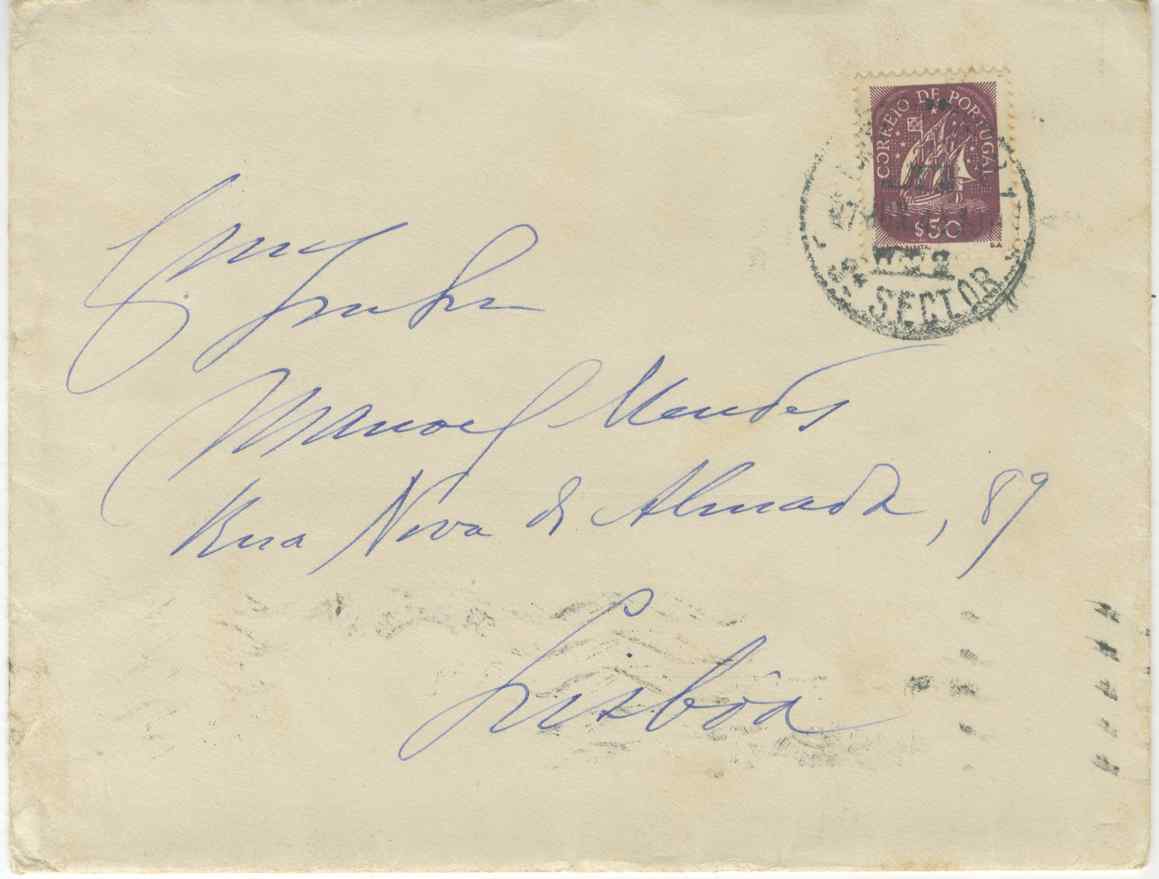 CORREIO DE PORTUGAL
$50
2º SECTOR
Exmo
Senhor
Manoel Mendes
Rua Nova do Almada, 89
Lisbôa